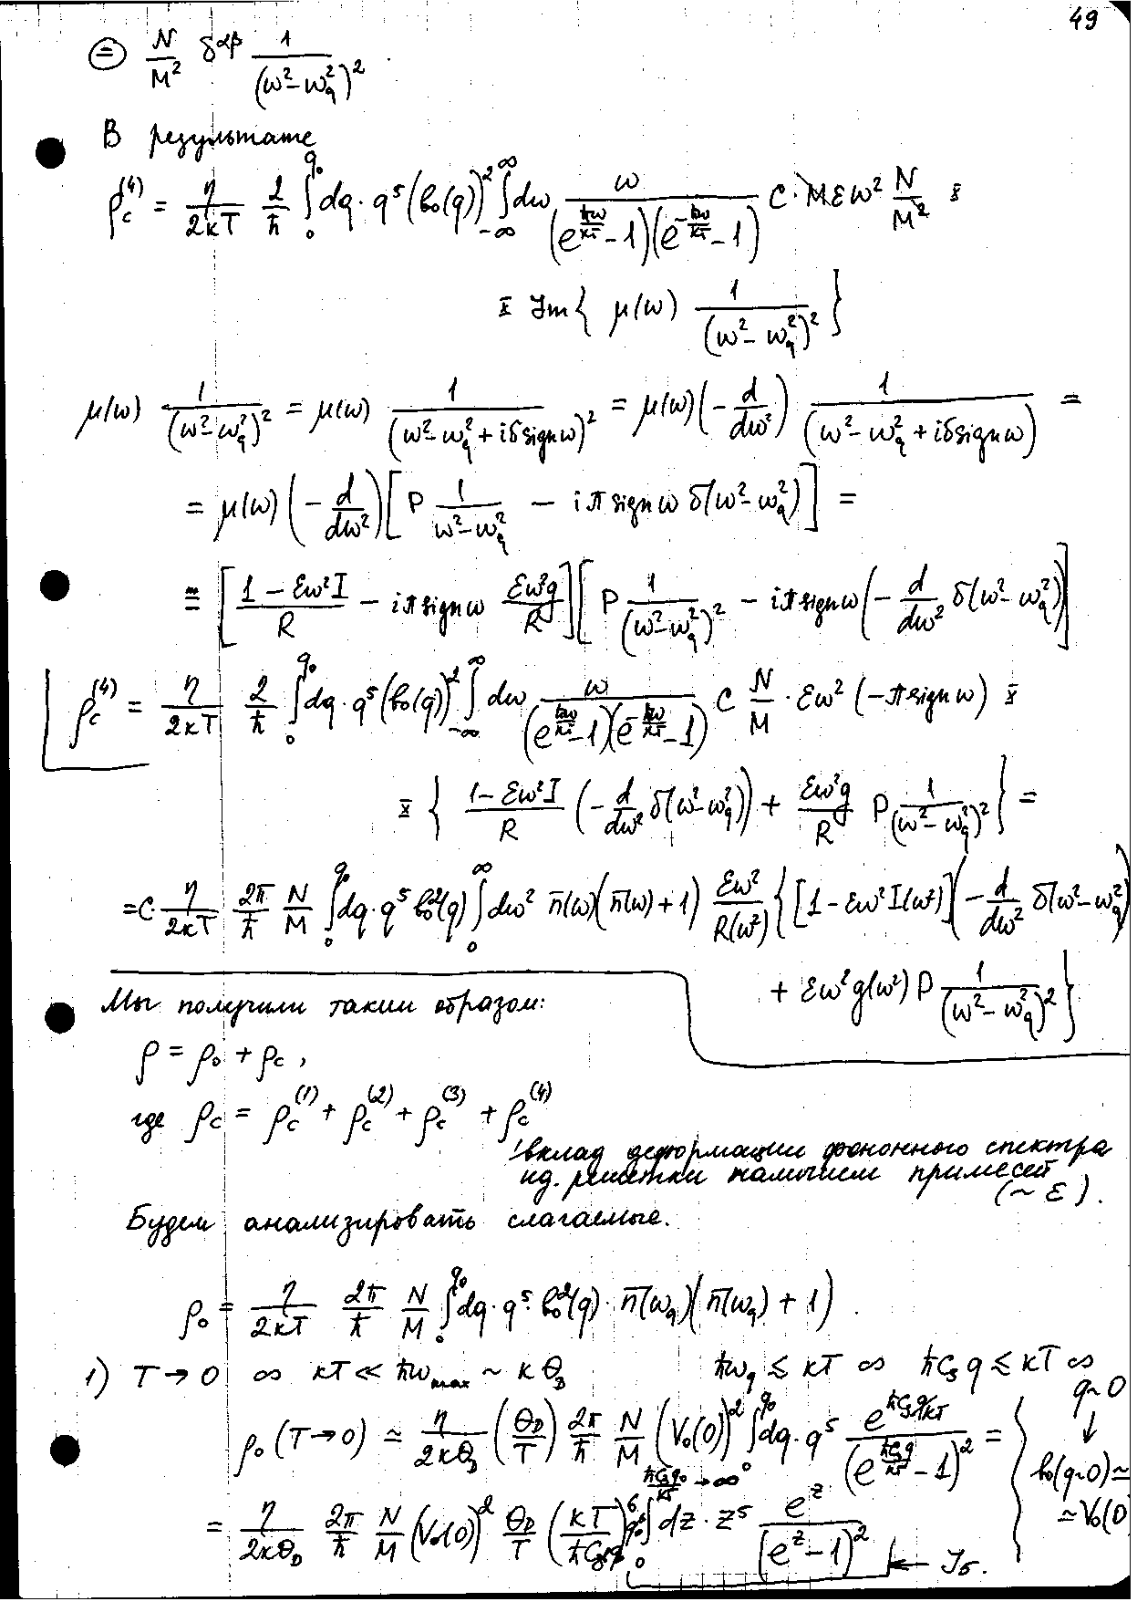 49
= N/M² δ^{αβ} 1/(ω²-ω_q²)² .
В результате
ρ_c^{(4)} = η/2kT 2/ħ ∫_0^{q₀} dq·q⁵(b₀(q))² ∫_{-∞}^{∞} dω ω/((e^{ħω/kT}-1)(e^{-ħω/kT}-1)) C·MEω² N/M² ×
× Im{ μ(ω) 1/(ω²-ω_q²)² }
μ(ω) 1/(ω²-ω_q²)² = μ(ω) 1/(ω²-ω_q²+iδsignω)² = μ(ω)(-d/dω²) 1/(ω²-ω_q²+iδsignω) =
= μ(ω)(-d/dω²)[P 1/(ω²-ω_q²) - iπsignω δ(ω²-ω_q²)] =
= [(1-Eω²I)/R - iπsignω Eω²g/R][P 1/(ω²-ω_q²)² - iπsignω(-d/dω² δ(ω²-ω_q²))]
ρ_c^{(4)} = η/2kT 2/ħ ∫_0^{q₀} dq·q⁵(b₀(q))² ∫_{-∞}^{∞} dω ω/((e^{ħω/kT}-1)(e^{-ħω/kT}-1)) C N/M · Eω² (-πsignω) ×
× { (1-Eω²I)/R (-d/dω² δ(ω²-ω_q²)) + Eω²g/R P 1/(ω²-ω_q²)² } =
= C η/2kT 2π/ħ N/M ∫_0^{q₀} dq·q⁵ b₀²(q) ∫_0^{∞} dω² n̄(ω)(n̄(ω)+1) Eω²/R(ω²) {[1-Eω²I(ω²)](-d/dω² δ(ω²-ω_q²)
+ Eω²g(ω²) P 1/(ω²-ω_q²)²}
Мы получили таким образом:
ρ = ρ₀ + ρ_c ,
где ρ_c = ρ_c^{(1)} + ρ_c^{(2)} + ρ_c^{(3)} + ρ_c^{(4)}
вклад деформации фононного спектра
ид. решетки наличием примесей
(~ E).
Будем анализировать слагаемые.
ρ₀ = η/2kT 2π/ħ N/M ∫_0^{q₀} dq·q⁵·b₀²(q)·n̄(ω_q)(n̄(ω_q)+1) .
1) T→0 ∞ kT ≪ ħω_max ~ kΘ_D ħω_q ≲ kT ∞ ħC_s q ≲ kT ∞
q~0
↓
b₀(q~0) ≃
≃ V₀(0)
ρ₀(T→0) ≃ η/2kΘ_D (Θ_D/T) 2π/ħ N/M (V₀(0))² ∫_0^{q₀} dq·q⁵ e^{ħC_s q/kT}/(e^{ħC_s q/kT}-1)² =
= η/2kΘ_D 2π/ħ N/M (V₀(0))² Θ_D/T (kT/ħC_s q₀)⁶ q₀⁶ ∫_0^{ħC_s q₀/kT→∞} dz·z⁵ e^z/(e^z-1)² ← J₅.